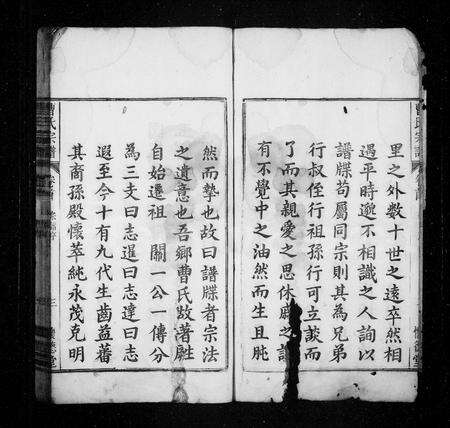 里之外數十世之遠卒然相
遇平時邈不相識之人詢以
譜牒苟屬同宗則其為兄弟
行叔侄行祖孫行可立談而
了而其親愛之思休戚之
有不覺中之油然而生且肫
曹氏宗譜
然而摯也故曰譜牒者宗法
之遺意也吾鄉曹氏㪚著甦
自始遷祖 閙一公一傳分
為三支曰志暹曰志達曰志
遐至今十有九代生齒益蕃
其裔孫殿懷萃純永茂克明